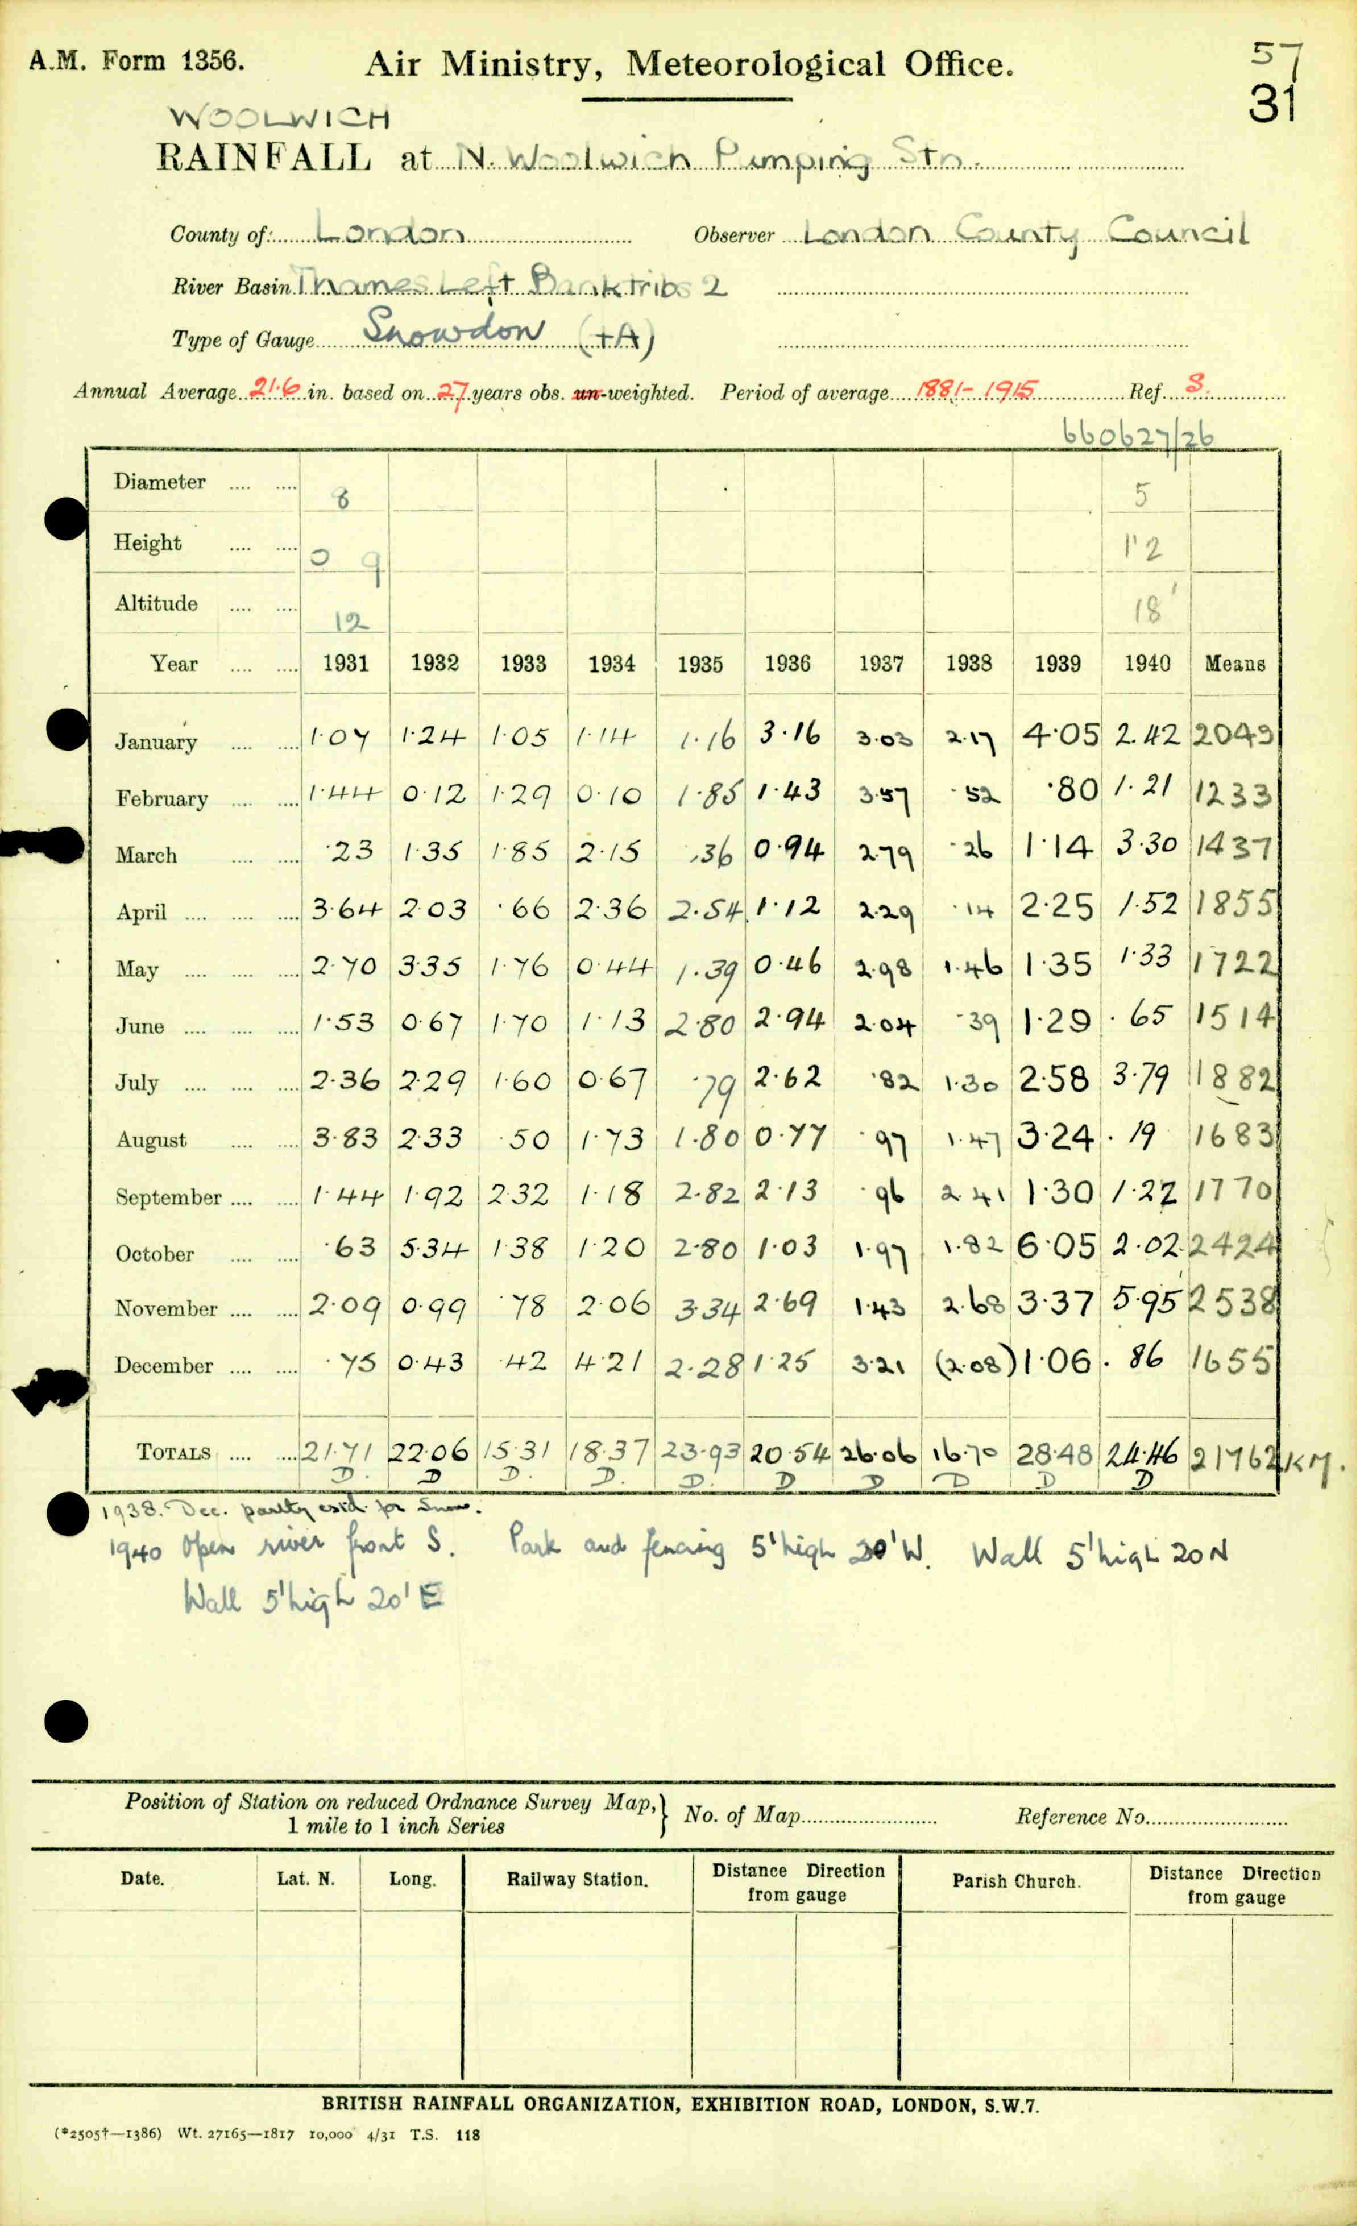 A.M. Form 1356. Air Ministry, Meteorological Office. 57
31
WOOLWICH
RAINFALL at N. Woolwich Pumping Stn.
County of: London Observer London County Council
River Basin Thames Left Bank tribs 2
Type of Gauge Snowdon (+A)
Annual Average 21.6 in. based on 27 years obs. un-weighted. Period of average 1881-1915 Ref. S.
660627/26
Diameter .... .... 8 5
Height .... .... 0 9 1'2
Altitude .... .... 12 18'
Year .... .... 1931 1932 1933 1934 1935 1936 1937 1938 1939 1940 Means
January .... .... 1.07 1.24 1.05 1.14 1.16 3.16 3.03 2.17 4.05 2.42 2049
February .... .... 1.44 0.12 1.29 0.10 1.85 1.43 3.57 .52 .80 1.21 1233
March .... .... .23 1.35 1.85 2.15 .36 0.94 2.79 .26 1.14 3.30 1437
April .... .... .... 3.64 2.03 .66 2.36 2.54 1.12 2.29 .14 2.25 1.52 1855
May .... .... .... 2.70 3.35 1.76 0.44 1.39 0.46 2.98 1.46 1.35 1.33 1722
June .... .... .... 1.53 0.67 1.70 1.13 2.80 2.94 2.04 .39 1.29 .65 1514
July .... .... .... 2.36 2.29 1.60 0.67 .79 2.62 .82 1.30 2.58 3.79 1882
August .... .... 3.83 2.33 .50 1.73 1.80 0.77 .97 1.47 3.24 .19 1683
September .... .... 1.44 1.92 2.32 1.18 2.82 2.13 .96 2.41 1.30 1.22 1770
October .... .... .63 5.34 1.38 1.20 2.80 1.03 1.97 1.82 6.05 2.02 2424
November .... .... 2.09 0.99 .78 2.06 3.34 2.69 1.43 2.68 3.37 5.95 2538
December .... .... .75 0.43 .42 4.21 2.28 1.25 3.21 (2.08) 1.06 .86 1655
TOTALS .... .... 21.71 22.06 15.31 18.37 23.93 20.54 26.06 16.70 28.48 24.46 21762 KM.
D. D D. D. D. D D D D D
1938. Dec. partly estd. for Snow.
1940 Open river front S. Park and fencing 5' high 20' W. Wall 5' high 20 N
Wall 5' high 20' E
Position of Station on reduced Ordnance Survey Map, } No. of Map Reference No.
1 mile to 1 inch Series
Date. Lat. N. Long. Railway Station. Distance Direction from gauge Parish Church. Distance Direction from gauge
BRITISH RAINFALL ORGANIZATION, EXHIBITION ROAD, LONDON, S.W.7.
(*2505†—1386) Wt. 27165—1817 10,000 4/31 T.S. 118